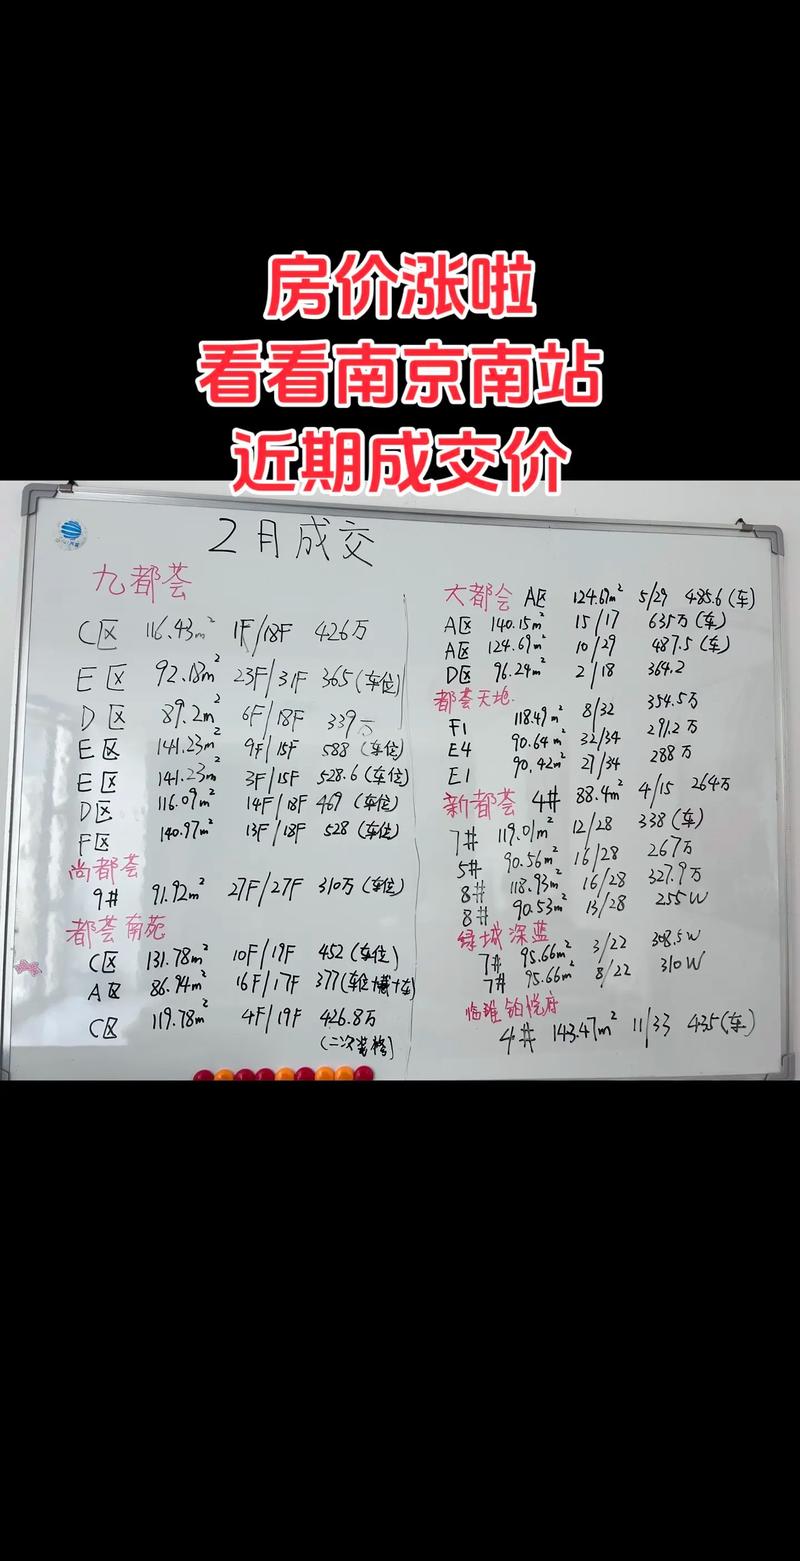 房价涨啦
看看南京南站
近期成交价
2月成交
九都荟
C区 116.43m² 1F/18F 426万
E区 92.18m² 23F/31F 365(车位)
D区 89.2m² 6F/18F 339万
E区 141.23m² 9F/15F 588(车位)
E区 141.23m² 3F/15F 528.6(车位)
D区 116.09m² 14F/18F 469(车位)
F区 140.97m² 13F/18F 528(车位)
尚都荟
9# 91.92m² 27F/27F 310万(车位)
都荟南苑
C区 131.78m² 10F/19F 452(车位)
A区 86.94m² 16F/17F 377(车位+藏+车)
C区 119.78m² 4F/19F 426.8万
(二次装修)
大都会 A区 124.69m² 5/29 485.6(车)
A区 140.15m² 15/17 635万(车)
A区 124.69m² 10/29 487.5(车)
D区 96.24m² 2/18 364.2
都荟天地.
F1 118.49m² 8/32 354.5万
E4 90.64m² 32/34 291.2万
E1 90.42m² 27/34 288万
新都荟 4# 88.4m² 4/15 264万
7# 119.01m² 12/28 338(车)
5# 90.56m² 16/28 267万
8# 118.93m² 16/28 327.9万
8# 90.53m² 13/28 255W
绿城深蓝
7# 95.66m² 3/22 308.5W
7# 95.66m² 8/22 310W
临雅铂悦府
4# 143.47m² 11/33 435(车)